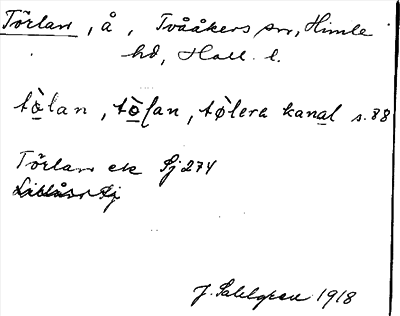 Törlan, å, Tvååkers sn, Himle
hd, Hall. l.
tò̲lan, tò̲lan, tø̀lera kanal s. 88
Törlan ek Sj 274
J. Sahlgren 1918